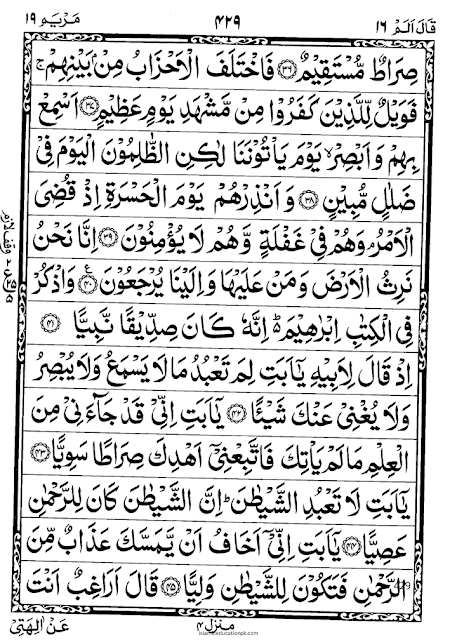 قَالَ اَلَمْ ١٦ ۴۲۹ مَرْيَم ١٩
صِرَاطٌ مُّسْتَقِيْمٌ ﴿۳۶﴾ فَاخْتَلَفَ الْاَحْزَابُ مِنْۢ بَيْنِهِمْ ۚ
فَوَيْلٌ لِّلَّذِيْنَ كَفَرُوْا مِنْ مَّشْهَدِ يَوْمٍ عَظِيْمٍ ﴿۳۷﴾ اَسْمِعْ
بِهِمْ وَاَبْصِرْ ۙ يَوْمَ يَاْتُوْنَنَا لٰكِنِ الظّٰلِمُوْنَ الْيَوْمَ فِيْ
ضَلٰلٍ مُّبِيْنٍ ﴿۳۸﴾ وَاَنْذِرْهُمْ يَوْمَ الْحَسْرَةِ اِذْ قُضِيَ
الْاَمْرُ ۘ وَهُمْ فِيْ غَفْلَةٍ وَّهُمْ لَا يُؤْمِنُوْنَ ﴿۳۹﴾ اِنَّا نَحْنُ
نَرِثُ الْاَرْضَ وَمَنْ عَلَيْهَا وَاِلَيْنَا يُرْجَعُوْنَ ﴿۴۰﴾ ع وَاذْكُرْ
فِي الْكِتٰبِ اِبْرٰهِيْمَ ؕ اِنَّهٗ كَانَ صِدِّيْقًا نَّبِيًّا ﴿۴۱﴾
اِذْ قَالَ لِاَبِيْهِ يٰۤاَبَتِ لِمَ تَعْبُدُ مَا لَا يَسْمَعُ وَلَا يُبْصِرُ
وَلَا يُغْنِيْ عَنْكَ شَيْئًا ﴿۴۲﴾ يٰۤاَبَتِ اِنِّيْ قَدْ جَآءَنِيْ مِنَ
الْعِلْمِ مَا لَمْ يَاْتِكَ فَاتَّبِعْنِيْۤ اَهْدِكَ صِرَاطًا سَوِيًّا ﴿۴۳﴾
يٰۤاَبَتِ لَا تَعْبُدِ الشَّيْطٰنَ ؕ اِنَّ الشَّيْطٰنَ كَانَ لِلرَّحْمٰنِ
عَصِيًّا ﴿۴۴﴾ يٰۤاَبَتِ اِنِّيْۤ اَخَافُ اَنْ يَّمَسَّكَ عَذَابٌ مِّنَ
الرَّحْمٰنِ فَتَكُوْنَ لِلشَّيْطٰنِ وَلِيًّا ﴿۴۵﴾ قَالَ اَرَاغِبٌ اَنْتَ
مَنزِل ۴ عَنْ اٰلِهَتِيْ
islamiceducationpk.com